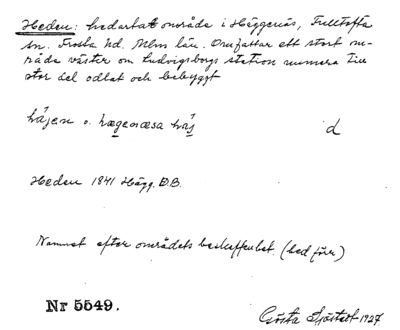 Heden: hedartat område i Häggenäs, Fulltofta
sn. Frosta hd. Mlm län. Omfattar ett stort om-
råde väster om Ludvigsborgs station numera till
stor del odlat och bebyggt
o. hægenæsa d
Heden 1841 Hägg. D.B.
Namnet efter områdets beskaffenhet. (hed förr)
Nr 5549.
Gösta Sjöstedt 1927.